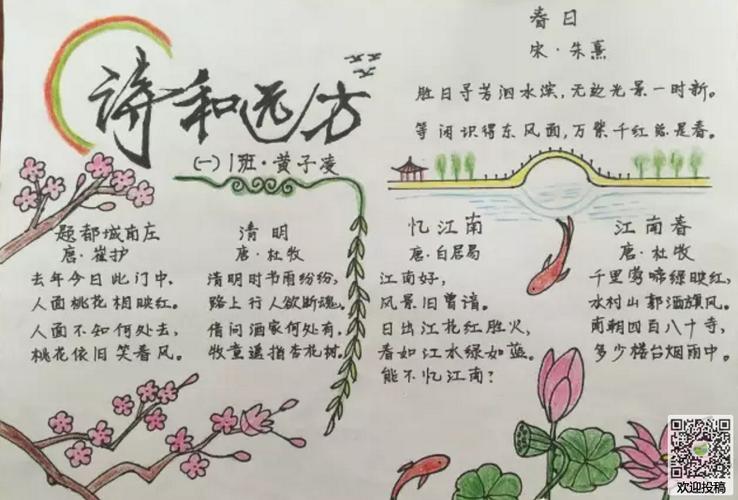 诗和远方
(一)1班·黄子凌
春日
宋·朱熹
胜日寻芳泗水滨,无边光景一时新。
等闲识得东风面,万紫千红总是春。
题都城南庄
唐·崔护
去年今日此门中,
人面桃花相映红。
人面不知何处去,
桃花依旧笑春风。
清明
唐·杜牧
清明时节雨纷纷,
路上行人欲断魂。
借问酒家何处有,
牧童遥指杏花树。
忆江南
唐·白居易
江南好,
风景旧曾谙。
日出江花红胜火,
春如江水绿如蓝。
能不忆江南?
江南春
唐·杜牧
千里莺啼绿映红,
水村山郭酒旗风。
南朝四百八十寺,
多少楼台烟雨中。
欢迎投稿